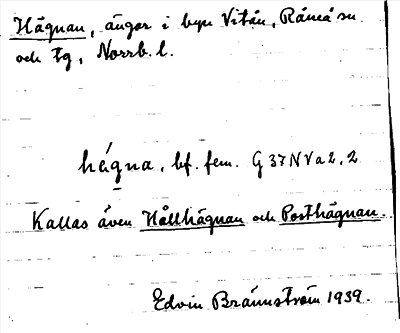 Hägnan, ängar i byn Vitån, Råneå sn.
och tg, Norrb. l.
hägna, bf. fem. G 37 N V a 2, 2
Kallas även Hållhägnan och Posthägnan.
Edvin Brännström 1939.